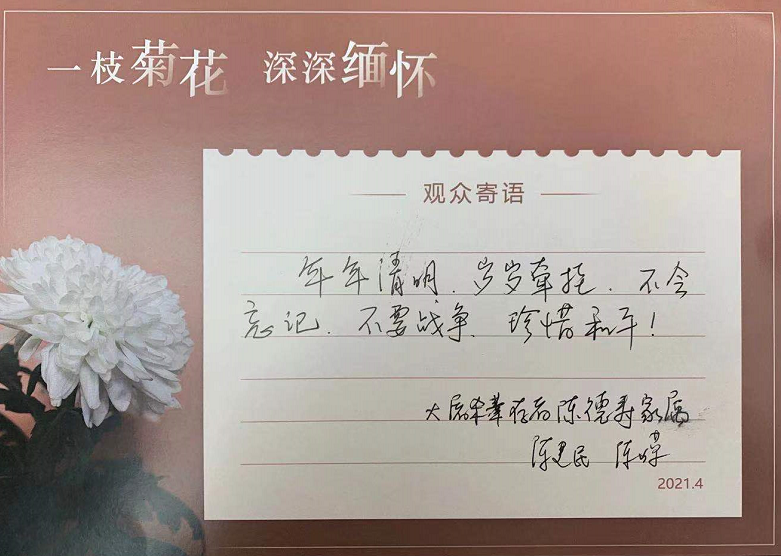 一枝菊花 深深缅怀
观众寄语
年年清明、岁岁牵挂、不会
忘记、不要战争、珍惜和平！
大屠杀幸存者陈德寿家属
陈建民 陈
2021.4